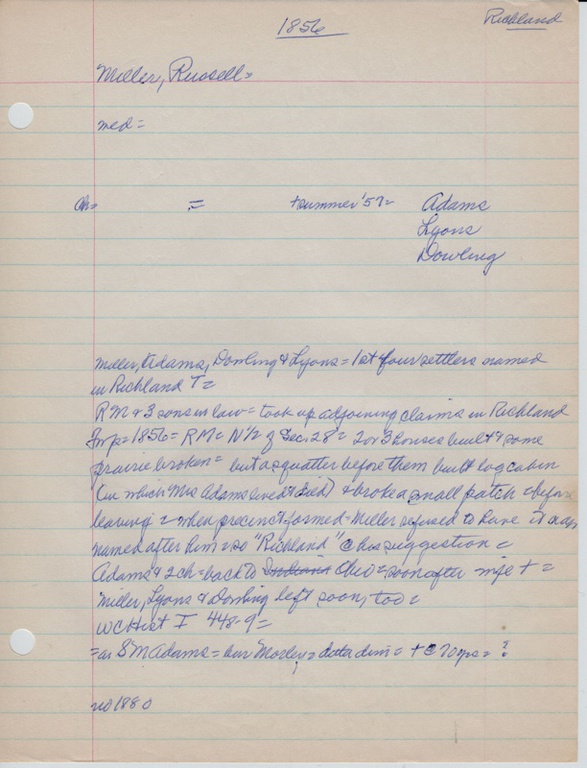 1856
Richland
Miller, Russell =
med =
ch = = + summer '57 = Adams
Lyons
Dowling
Miller, Adams, Dowling & Lyons = 1st four settlers named
in Richland T =
RM & 3 sons in law = took up adjoining claims in Richland
= 1856 = RM = N½ of Sec. 28 = 2 or 3 houses built & some
prairie broken = but a squatter before them built log cabin
(in which Mrs Adams lived & died) & broke a small patch before
leaving = when precinct formed = Miller refused to have it
named after him = so "Richland" @ his suggestion =
Adams & 2 ch = back to Indiana Ohio = soon after wife + =
Miller, Lyons & Dowling left soon, too =
WC Hist I 448-9 =
= an S M Adams = bur Mosley = dim = + @ 70 yrs = ?
no 1880